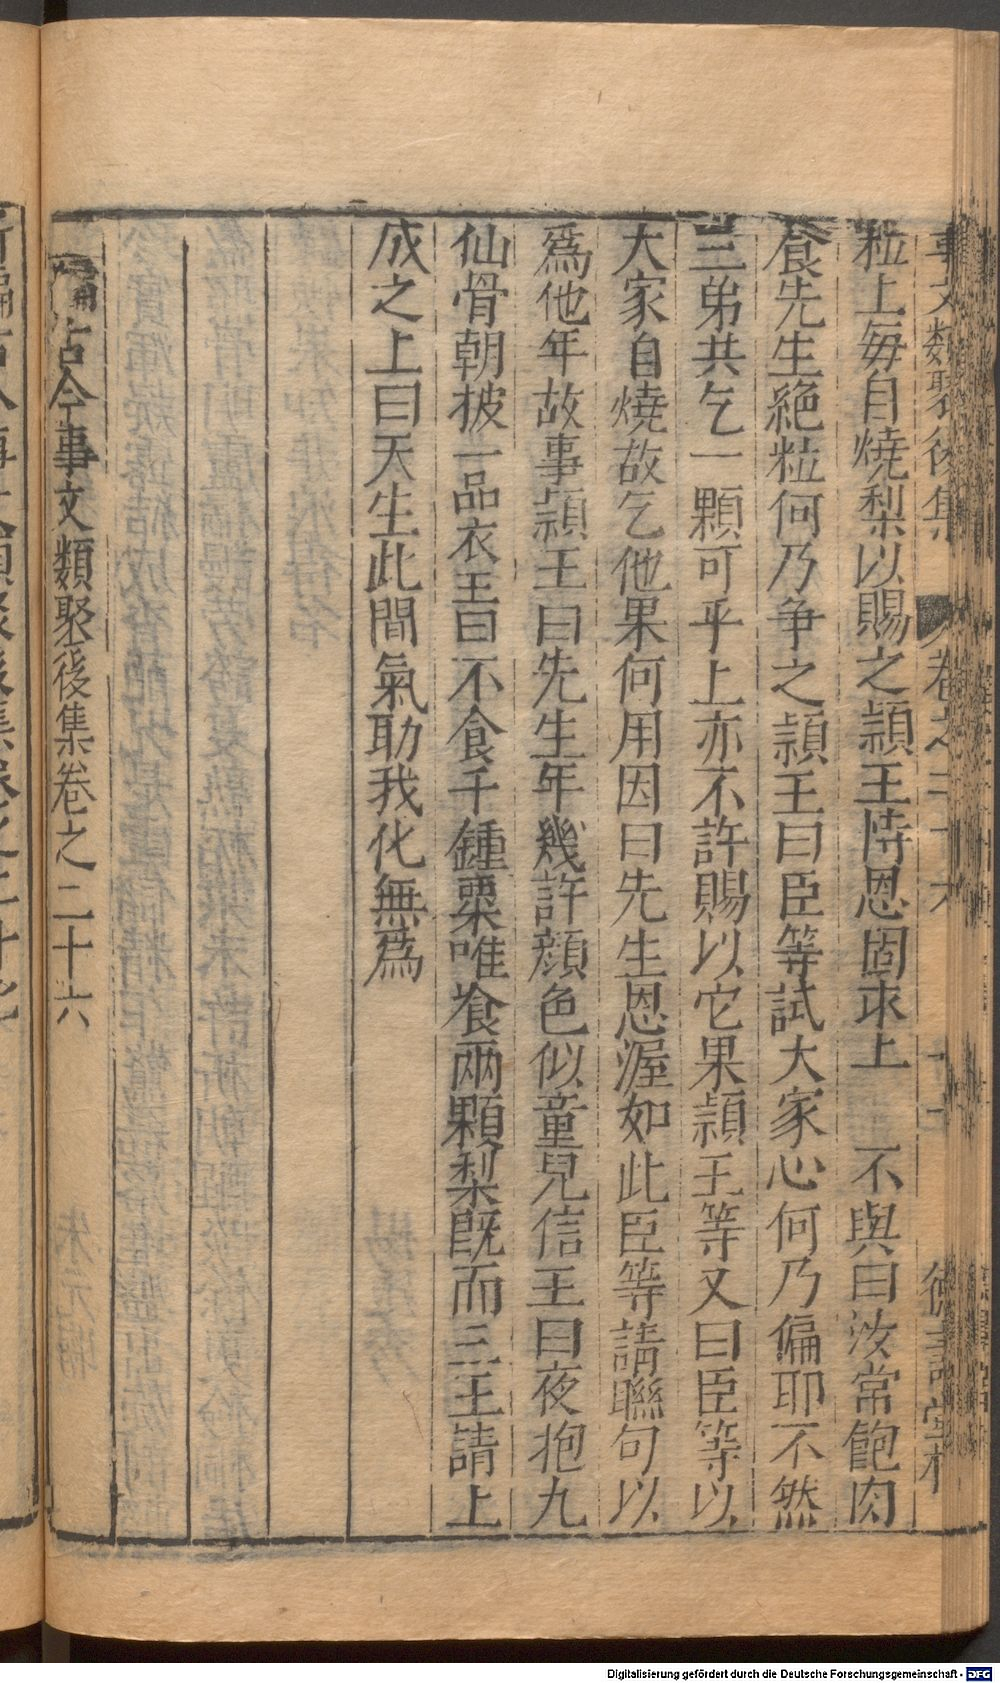 事文類聚後集 卷之二十六
粒上每自燒梨以賜之潁王恃恩固求上 不與曰汝常飽肉
食先生絕粒何乃争之潁王曰臣等試大家心何乃偏耶不然
三弟共乞一顆可乎上亦不許賜以它果潁王等又曰臣等以
大家自燒故乞他果何用因曰先生恩渥如此臣等請聮句以
爲他年故事潁王曰先生年幾許顔色似童兒信王曰夜抱九
仙骨朝披一品衣王曰不食千鍾粟唯飡兩顆梨既而三王請上
成之上曰天生此間氣助我化無爲
編古今事文類聚後集卷之二十六
Digitalisierung gefördert durch die Deutsche Forschungsgemeinschaft - DFG